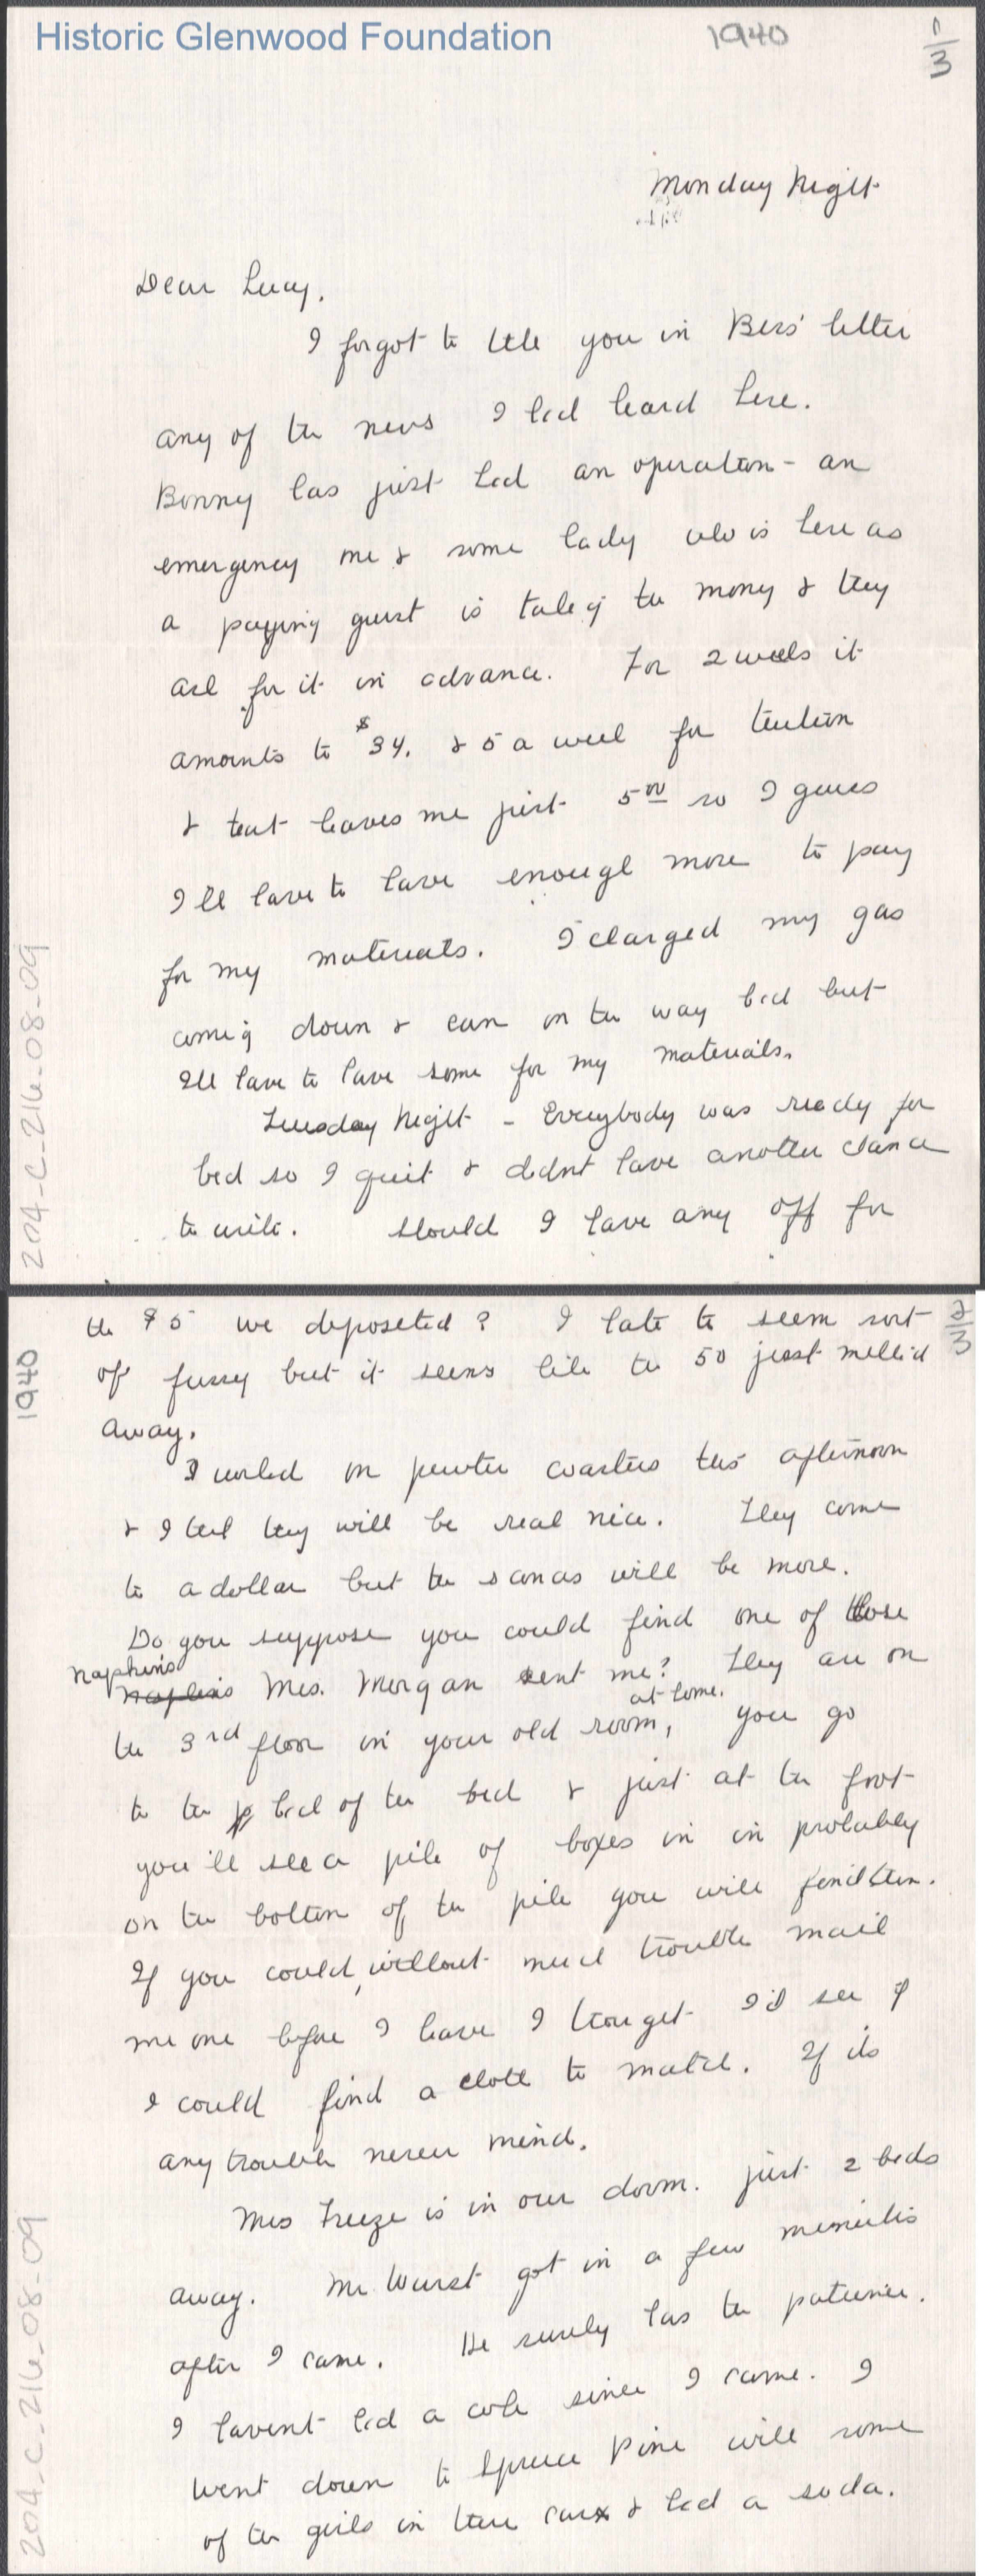 Historic Glenwood Foundation
1940
1/3
Monday Night
Dear Lucy,
I forgot to tell you in Bess' letter
any of the news I had heard here.
Bonny has just had an operation - an
emergency one & some lady who is here as
a paying guest is takeg the money & they
ask for it in advance. For 2 weeks it
amounts to $34. & 5 a week for tuition
& that leaves me just 5.00 so I guess
I'll have to have enough more to pay
for my materials. I charged my gas
coming down & can on the way back but
I'll have to have some for my materials.
Tuesday Night - Everybody was ready for
bed so I quit & didnt have another chance
to write. Should I have any off for
204-C-216-08-09
the $5 we deposeted? I hate to seem sort
2/3
of fussy but it seems like the 50 just melted
away.
1940
I worked on pewter coasters this afternoon
& I think they will be real nice. They come
to a dollar but the sanas will be more.
Do you suppose you could find one of those
Napkins
Napkins Mrs. Morgan sent me? They are on
at home.
the 3rd floor in your old room, you go
to the back of the bed & just at the foot
you'll see a pile of boxes in in probably
on the bottom of the pile you will find them.
If you could, without much trouble mail
me one before I leave I thought I'd see if
I could find a cloth to match. If its
any trouble never mind.
Mrs Freeze is in our dorm. just 2 beds
away. Mr. Wurst got in a few minutes
after I came. He surely has the patience.
I havent had a coke since I came. I
went down to Spruce Pine with some
of the girls in their car & had a soda.
204-C-216-08-09